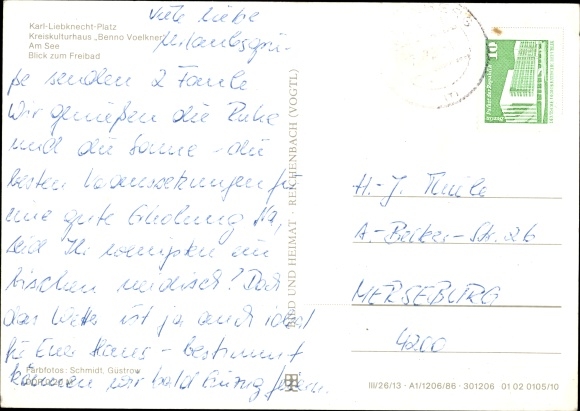 Karl-Liebknecht-Platz
Kreiskulturhaus „Benno Voelkner"
Am See
Blick zum Freibad
Viele liebe
Urlaubsgrü-
ße senden 2 Faule
Wir genießen die Ruhe
und die Sonne - die
besten Voraussetzungen für
eine gute Erholung. Na,
seid Ihr wenigstens ein
bischen neidisch? Doch
das Wetter ist ja auch ideal
für Euer Haus - bestimmt
können wir bald Einzug feiern.
Farbfotos: Schmidt, Güstrow
BILD UND HEIMAT · REICHENBACH (VOGTL)
10
H.-J. Thiele
A.-Becker-Str. 26
MERSEBURG
4200
III/26/13 · A1/1206/86 · 301206 01 02 0105/10